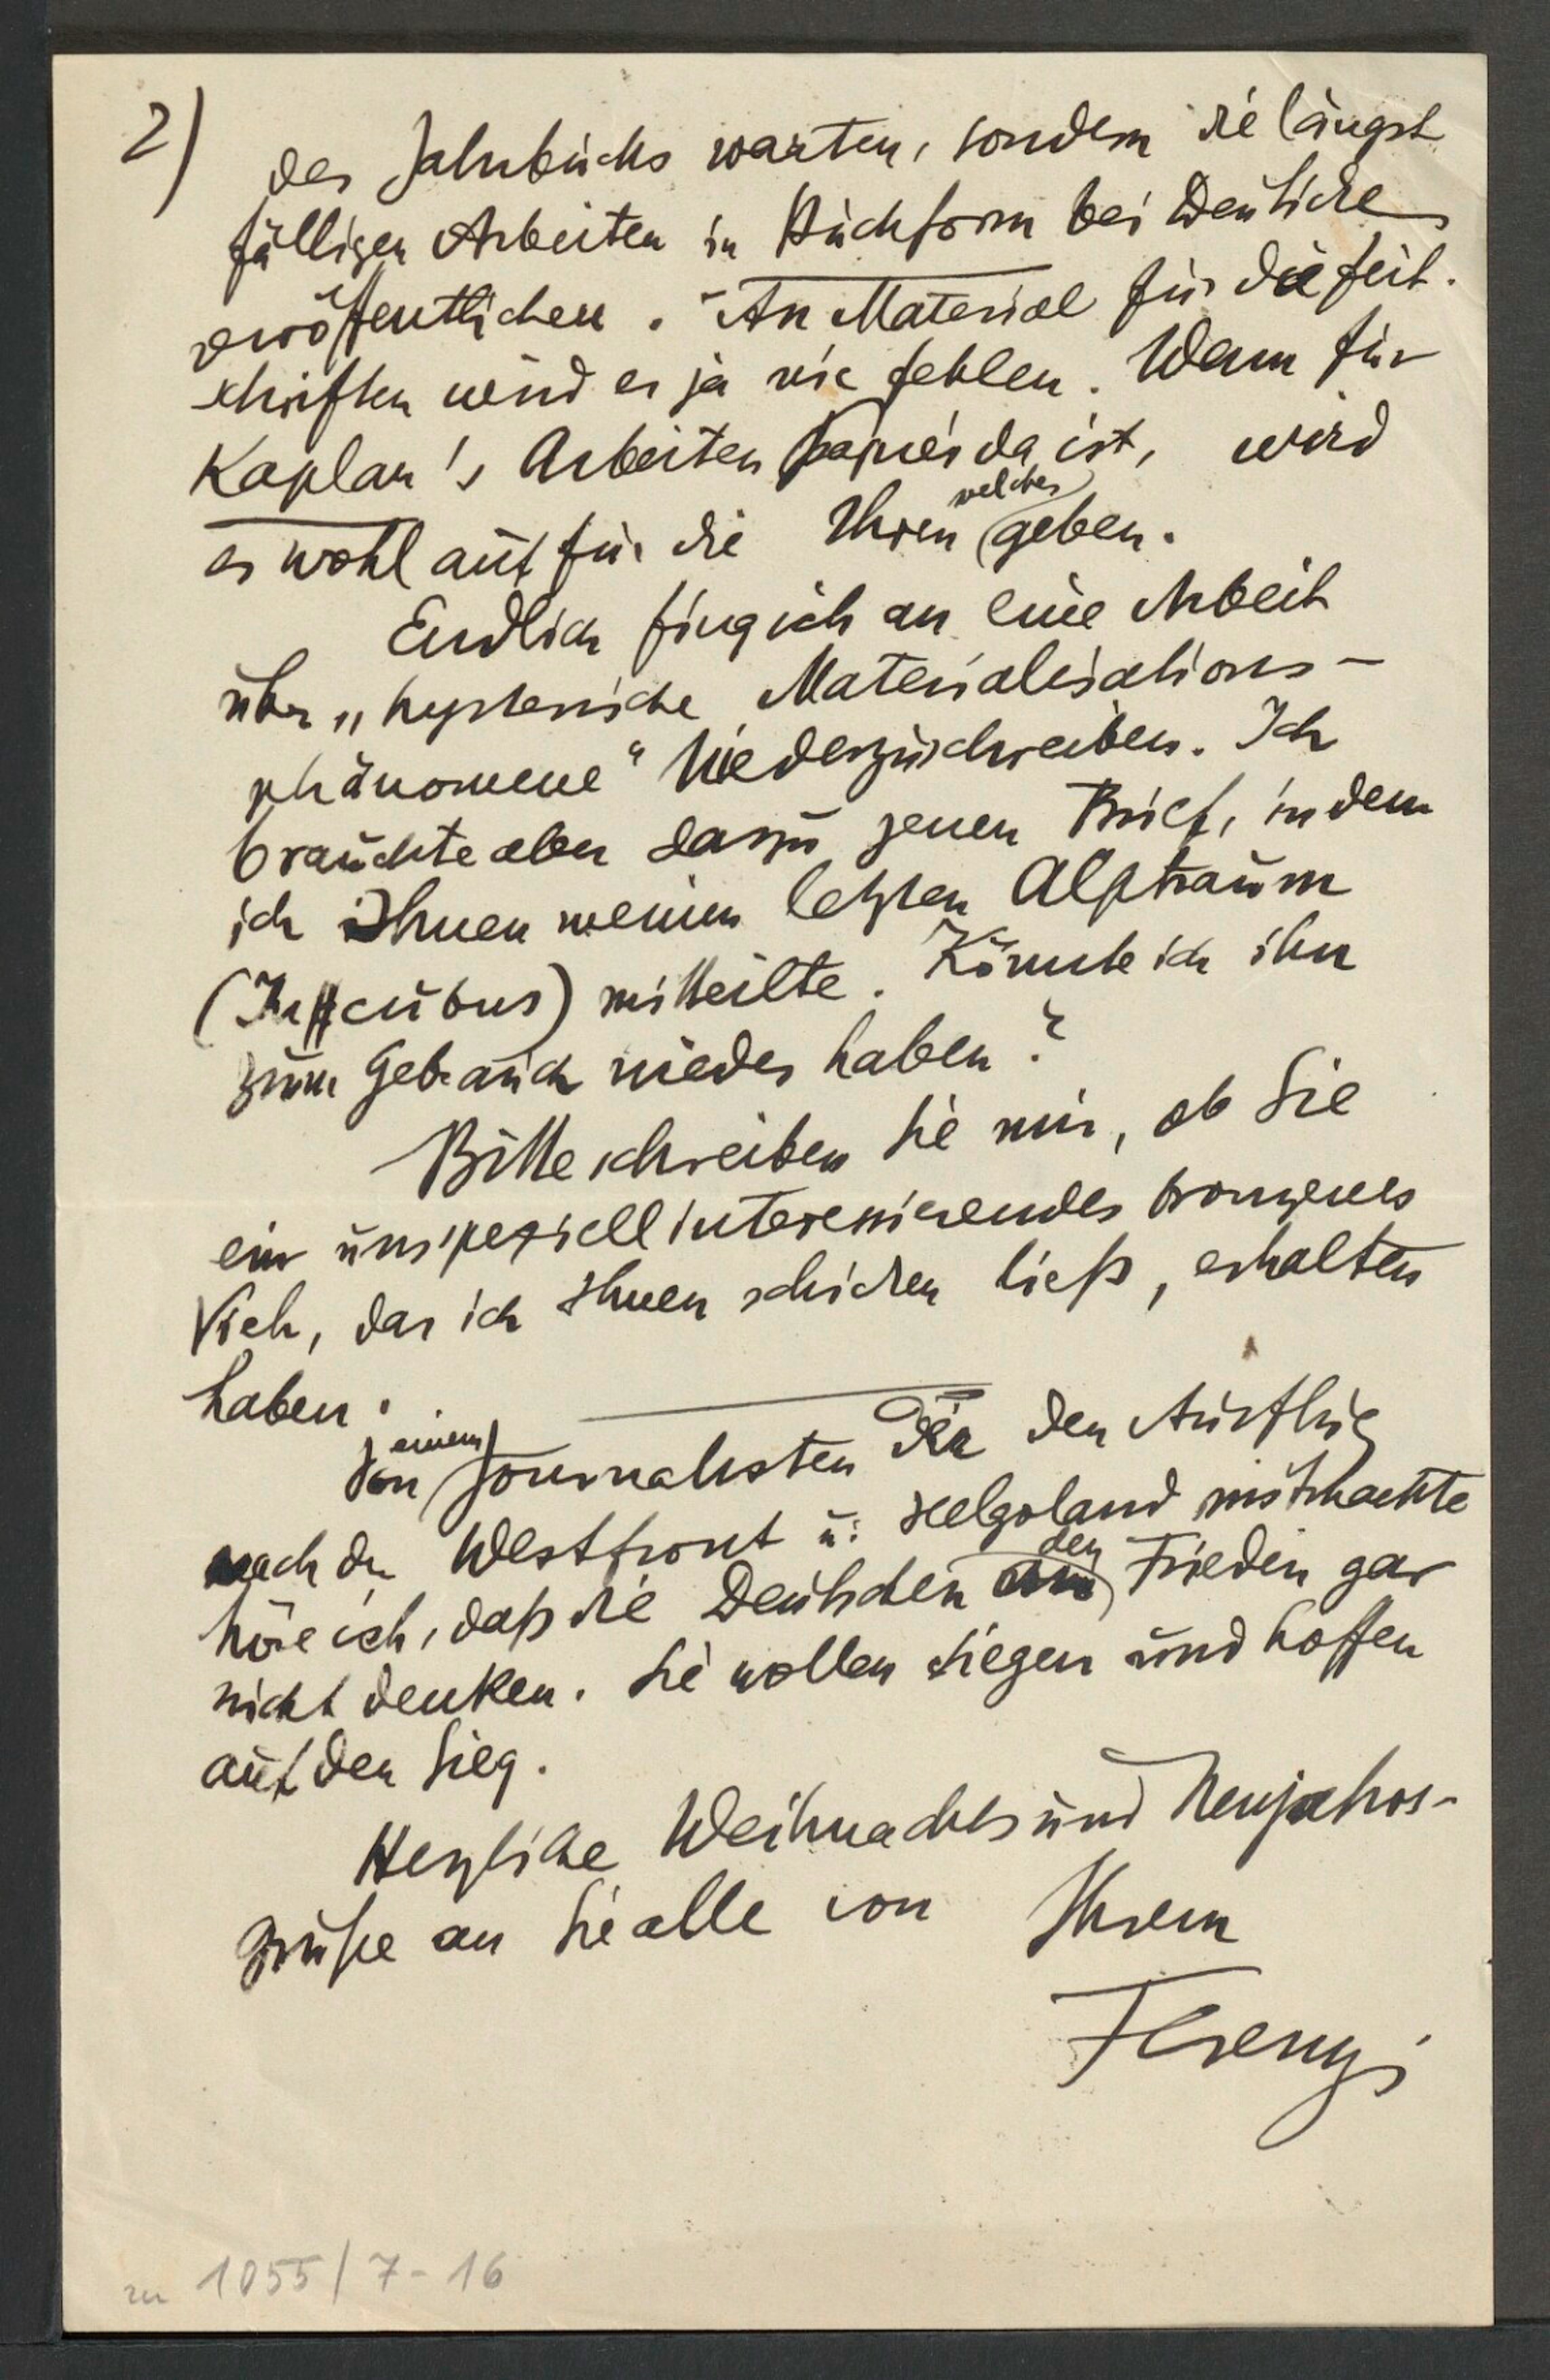 2)
des Jahrbuchs warten, sondern die längst
fälligen Arbeiten in Buchform bei Deuticke
veröffentlichen. An Material für die Zeit-
schriften wird es ja nie fehlen. Wenn für
Kaplan's Arbeiten Papier da ist, wird
es wohl auf für die Ihren welches geben.
Endlich fing ich an eine Arbeit
über „hysterische Materialisations-
phänomene" niederzuschreiben. Ich
brauchte aber dazu jenen Brief, in dem
ich Ihnen meinen letzten Alptraum
(Incubus) mitteilte. Könnte ich ihn
zum Gebrauch wieder haben?
Bitte schreiben Sie mir, ob Sie
ein uns speziell interessierendes bronzenes
Vieh, das ich Ihnen schicken ließ, erhalten
haben.
Von einem Journalisten der den Ausflug
nach der Westfront u. Helgoland mitmachte
höre ich, daß die Deutschen an den Frieden gar
nicht denken. Sie wollen siegen und hoffen
auf den Sieg.
Herzliche Weihnachts und Neujahrs-
grüße an Sie alle von Ihrem
Ferenczi
zu 1055/7-16